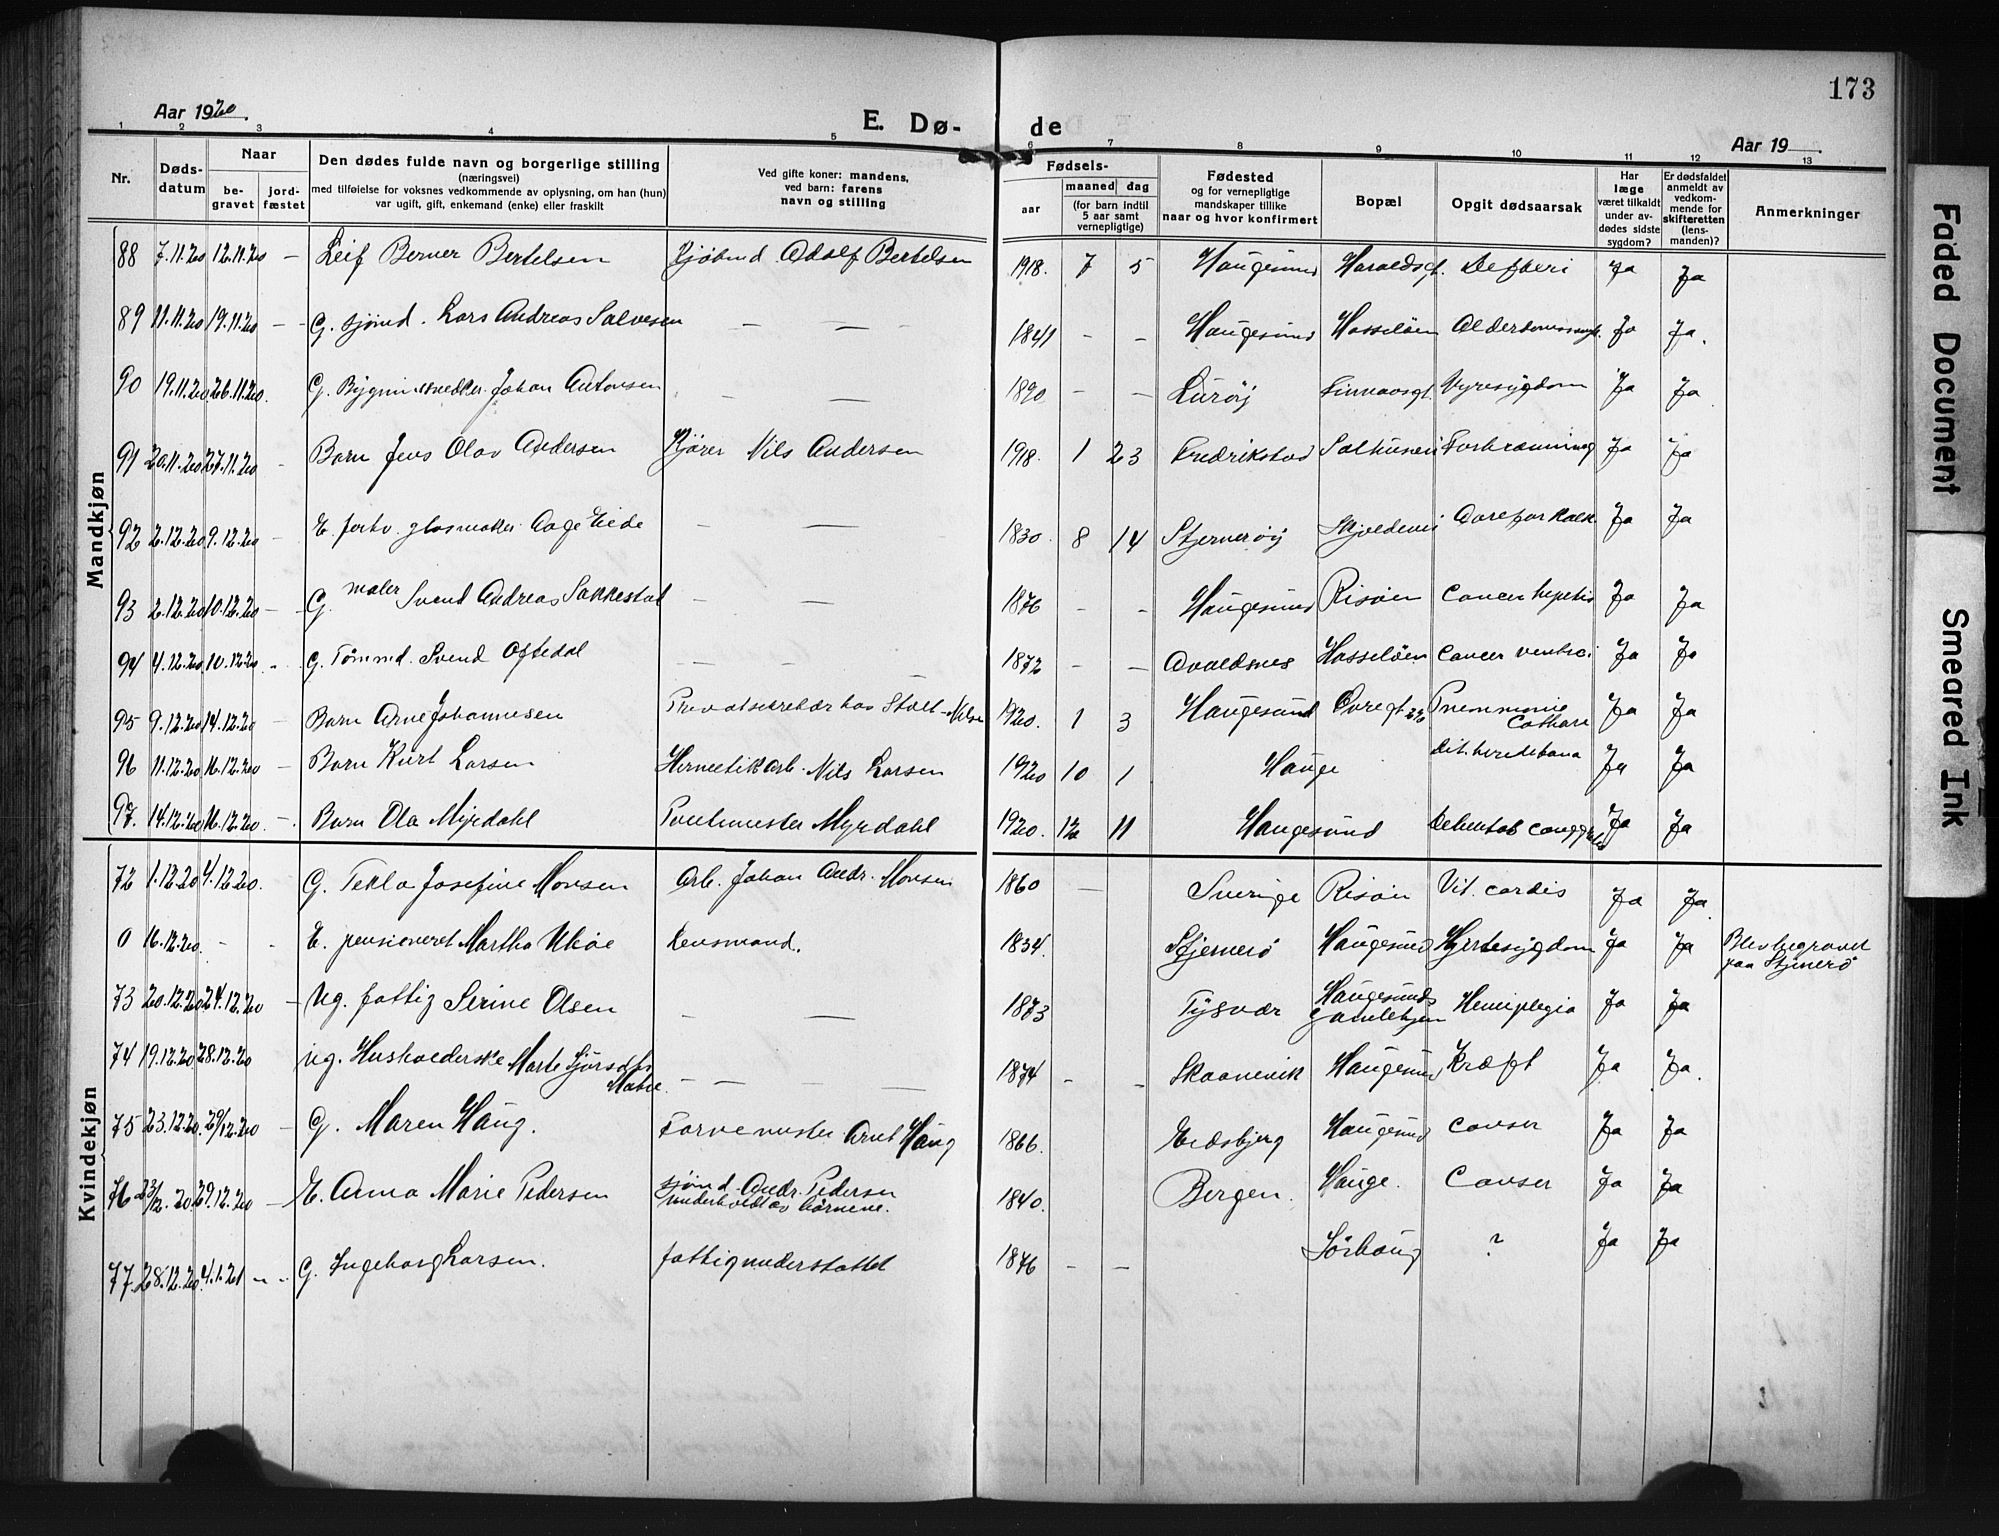 173
Aar 1920.
E. Dø- de
Aar 19
1 2 3 4 5 6 7 8 9 10 11 12 13
Nr. Døds-datum Naar be-gravet jord-fæstet Den dødes fulde navn og borgerlige stilling (næringsvei) med tilføielse for voksnes vedkommende av oplysning, om han (hun) var ugift, gift, enkemand (enke) eller fraskilt Ved gifte koner: mandens, ved barn: farens navn og stilling Fødsels- aar maaned dag (for barn indtil 5 aar samt vernepligtige) Fødested og for vernepligtige mandskaper tillike naar og hvor konfirmert Bopæl Opgit dødsaarsak Har læge været tilkaldt under av-dødes sidste sygdom? Er dødsfaldet anmeldt av vedkom-mende for skifteretten (lens-manden)? Anmerkninger
Mandkjøn
88 7.11.20 12.11.20 — Leif Berner Bertelsen Kjøbmd Adolf Bertelsen 1918. 7 5 Haugesund Haraldsgt. Difteri Ja Ja
89 11.11.20 19.11.20 — G. sjømd. Lars Andreas Salvesen — — 1841 — — Haugesund Hasseløen Ja Ja.
90 19.11.20 26.11.20. G. Johan Antonsen — — 1890 — — Lurøy Nyresygdom Ja Ja
91 20.11.20 27.11.20 — Barn Jens Olav Andersen Kjører Nils Andersen 1918. 1 23 Fredrikstad Salhusvei Forbrænning Ja Ja
92 2.12.20 9.12.20 — E. forhv. glasmaker Aage Eide — — 1830. 8 14 Stjernerøy Skjoldevei Aareforkalk Ja Ja
93 2.12.20 10.12.20 — G. maler Svend Andreas Sakkestad — — 1876 — — Haugesund Risøen Cancer hepatis Ja Ja
94 4.12.20 10.12.20 — G. Tømmd. Svend Oftedal — — 1872 — — Avaldsnes Hasseløen Cancer ventrici Ja Ja
95 9.12.20 14.12.20 — Barn Arne Johannesen Privatsekretær hos Stolt-Nilsen 1920. 1 3 Haugesund Øvregt Ja Ja
96 11.12.20 16.12.20 — Barn Kurt Larsen Hermetikarb. Nils Larsen 1920 10 1 Hauge Ja Ja
97. 14.12.20 16.12.20. — Barn Ola Myrdahl Myrdahl 1920. 12 11 Haugesund Ja Ja
Kvindekjøn
72 1.12.20 4.12.20. G. Tekla Josefine Monsen Arb. Johan Andr. Monsen 1860 — Sverige Risøin Vit. cordis Ja Ja
0 16.12.20. - - E. pensioneret Martha Lensmand. 1834. Stjernerø Haugesund Hjertesygdom Ja Ja Blev begravet paa Stjernerø
73 20.12.20 24.12.20 — Ug. fattig Serine Olsen — — 1873 Tysvær Haugesunds gamlehjem Hemiplegia Ja Ja
74 19.12.20 28.12.20 Ug. Husholderske Marte Matre. — — — 1874 — — Skaanevik Haugesund Kræft Ja Ja.
75 23.12.20. 29/12.20 — G. Maren Haug. Farvemester Arnt Haug 1866. Eidsbjerg Haugesund Canser Ja Ja
76 23/12.20. 29.12.20 — E. Anna Marie Pedersen sjømd. Andr. Pedersen underholdt av børnene. 1840. Bergen. Hauge. Canser Ja Ja
77. 28.12.20. 4.1.21 - - G. Ingeborg Larsen. fattigunderstøttet 1846 — — Sørhaug ? Ja Ja
Faded Document
Smeared Ink